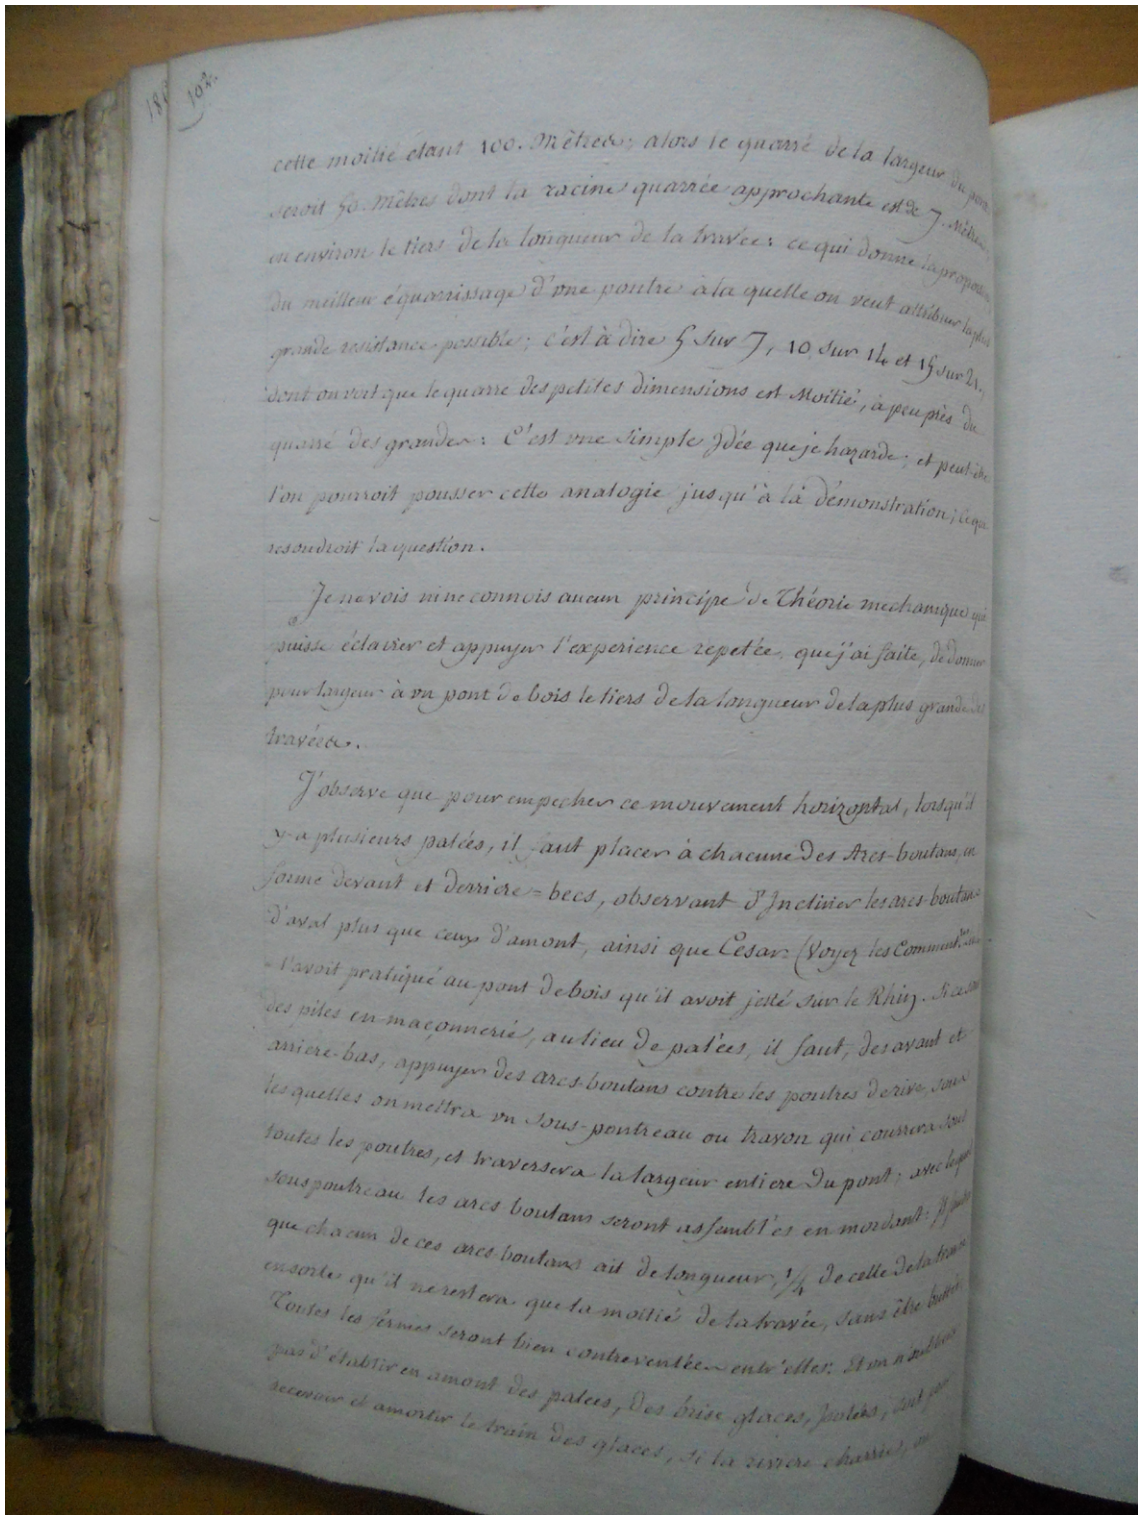 102.
cette moitié étant 100. Mêtres; alors le quarré de la largeur du pont
seroit 50. Mêtres dont la racine quarrée approchante est de 7. Mêtres,
ou environ le tiers de la longueur de la travée: ce qui donne la proportion
du meilleur équarrissage d'une poutre à la quelle on veut attribuer la plus
grande resistance possible; c'est à dire 5 sur 7, 10 sur 14 et 15 sur 21.,
dont on voit que le quarré des petites dimensions est Moitié, à peu près du
quarré des grandes: C'est une simple Idée que je hazarde; et peut-être
l'on pourroit pousser cette analogie jusqu'à la démonstration; ce qui
resoudroit la question.
Je ne vois ni ne connois aucun principe de Théorie mechanique qui
puisse éclairer et appuyer l'experience repetée que j'ai faite, de donner
pour largeur à un pont de bois le tiers de la longueur de la plus grande des
travées.
J'observe que pour empecher ce mouvement horizontal, lorsqu'il
y a plusieurs palées, il faut placer à chacune des Arcs-boutans, en
forme devant et derriere-becs, observant d'Incliner les arcs-boutans
d'aval plus que ceux d'amont, ainsi que Cesar (Voyez les Comment.res
l'avoit pratiqué au pont de bois qu'il avoit jetté sur le Rhin. Si ce sont
des piles en maçonnerie, au lieu de palées, il faut, des avant et
arriere-bas, appuyer des arcs-boutans contre les poutres de rive sous
les quelles on mettra un sous-poutreau ou travon qui courrera sous
toutes les poutres, et traversera la largeur entiere du pont; avec lequel
sous poutreau les arcs boutans seront assemblés en mordant: Il faudra
que chacun de ces arcs boutans ait de longueur, 1/4 de celle de la travée
ensorte qu'il ne restera que la moitié de la travée, sans être buttée
Toutes les fermes seront bien contreventées entr'elles: Et on n'oubliera
pas d'établir en amont des palées, des brise glaces, Isolées, soit pour
recevoir et amortir le train des glaces, si la riviere charrie,